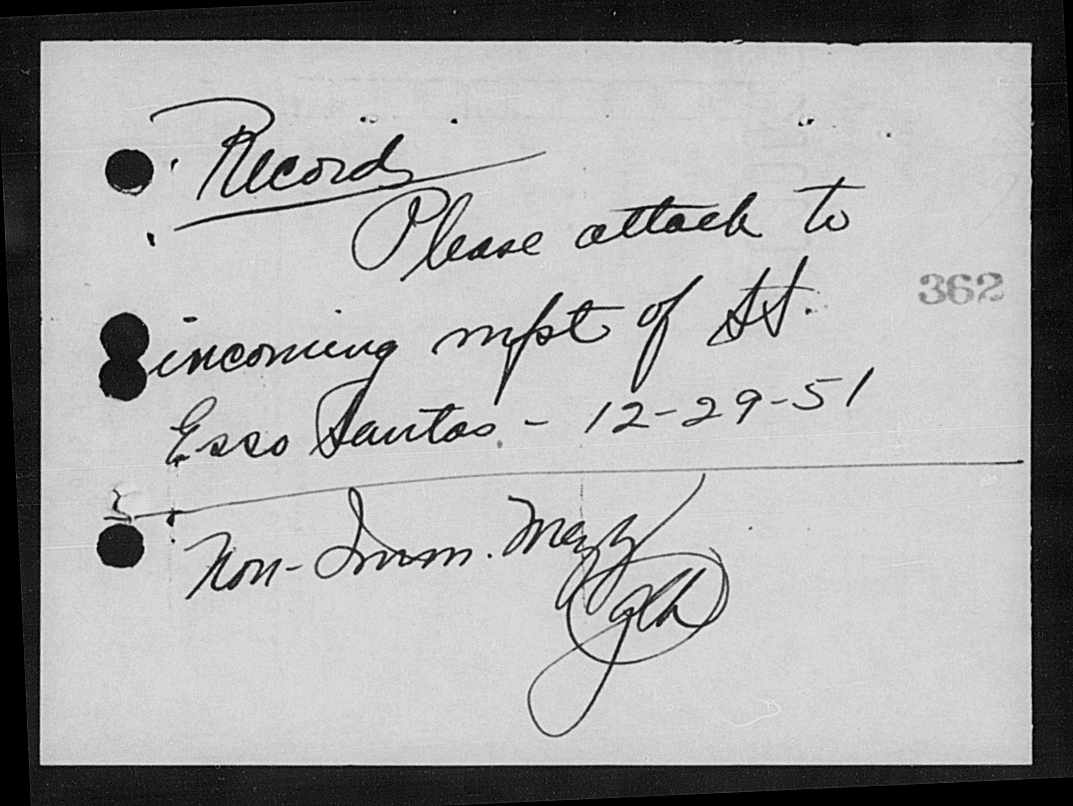 Record
Please attach to
362
incoming mfst of SS.
Esso Santos - 12-29-51
Non-Imm.